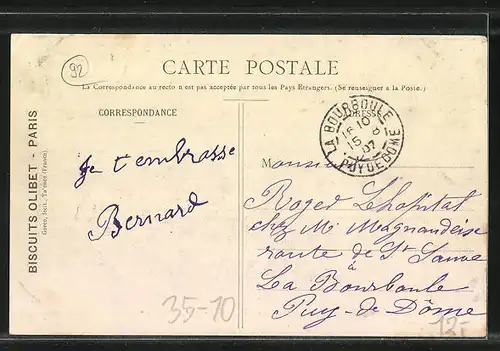 92
CARTE POSTALE
La Correspondance au recto n'est pas acceptée par tous les Pays Étrangers. (Se renseigner à la Poste.)
CORRESPONDANCE
ADRESSE
LA BOURBOULE
16 10
15 8
07
PUY DE DOME
BISCUITS OLIBET - PARIS
Je t'embrasse
Bernard
Monsieur
Roger Lhopital
chez Mr Magnandeise
route de St Sauve
à
La Bourboule
Puy-de Dôme
35-10
12-